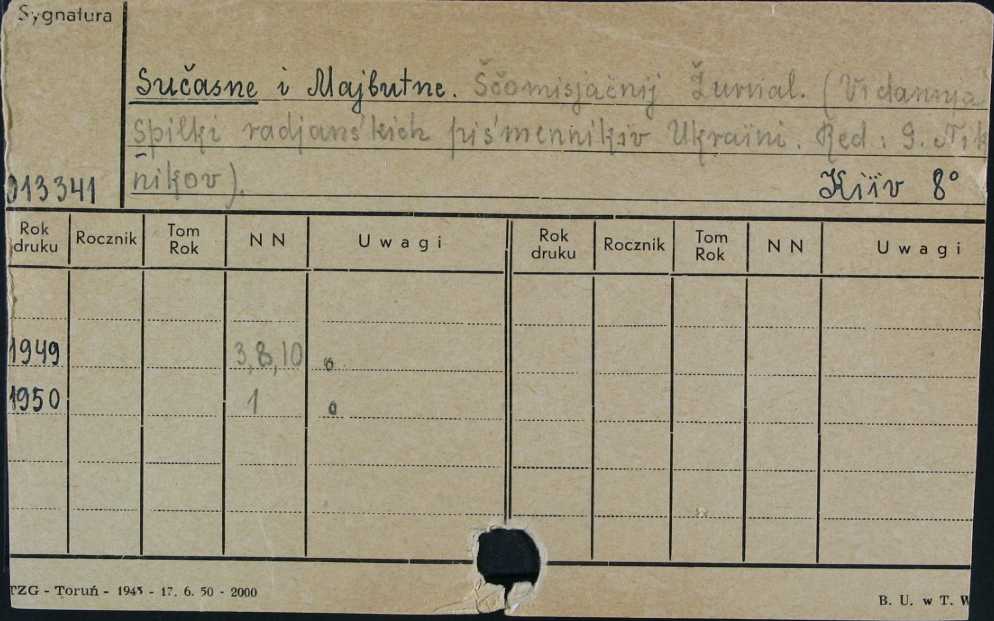 Sygnatura
Sučasne i Majbutne. Ščomisjačnij Žurnal. (Vidannja
Spilki radjanśkich piśmennikiv Ukraïni. Red: G. Tik
nikov).
013341 Kiïv 8°
Rok druku Rocznik Tom Rok N N Uwagi Rok druku Rocznik Tom Rok N N Uwagi
1949 3,8,10
1950 1
TZG - Toruń - 1945 - 17. 6. 50 - 2000
B. U. w T. W